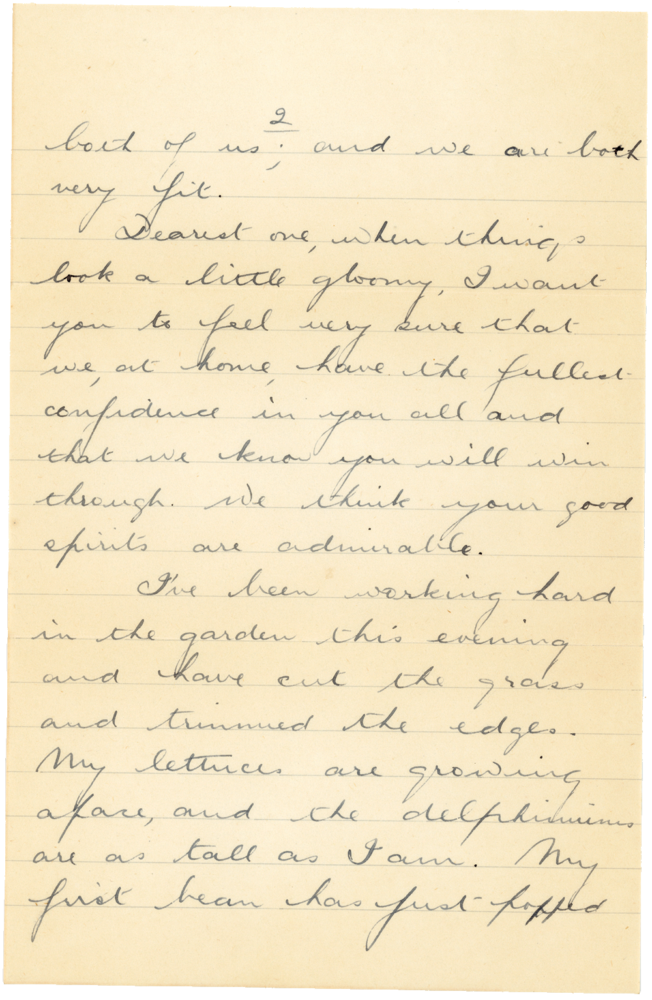 2
both of us; and we are both
very fit.
Dearest one, when things
look a little gloomy, I want
you to feel very sure that
we, at home, have the fullest
confidence in you all and
that we know you will win
through. We think your good
spirits are admirable.
I've been working hard
in the garden this evening
and have cut the grass
and trimmed the edges.
My lettuces are growing
apace, and the delphiniums
are as tall as I am. My
first bean has just popped